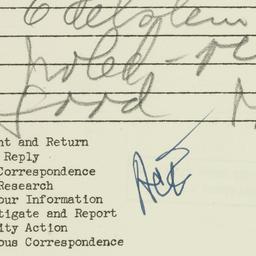 Edelstein
good
nt and Return
Reply
Correspondence
Research
our Information
tigate and Report
ity Action
ous Correspondence